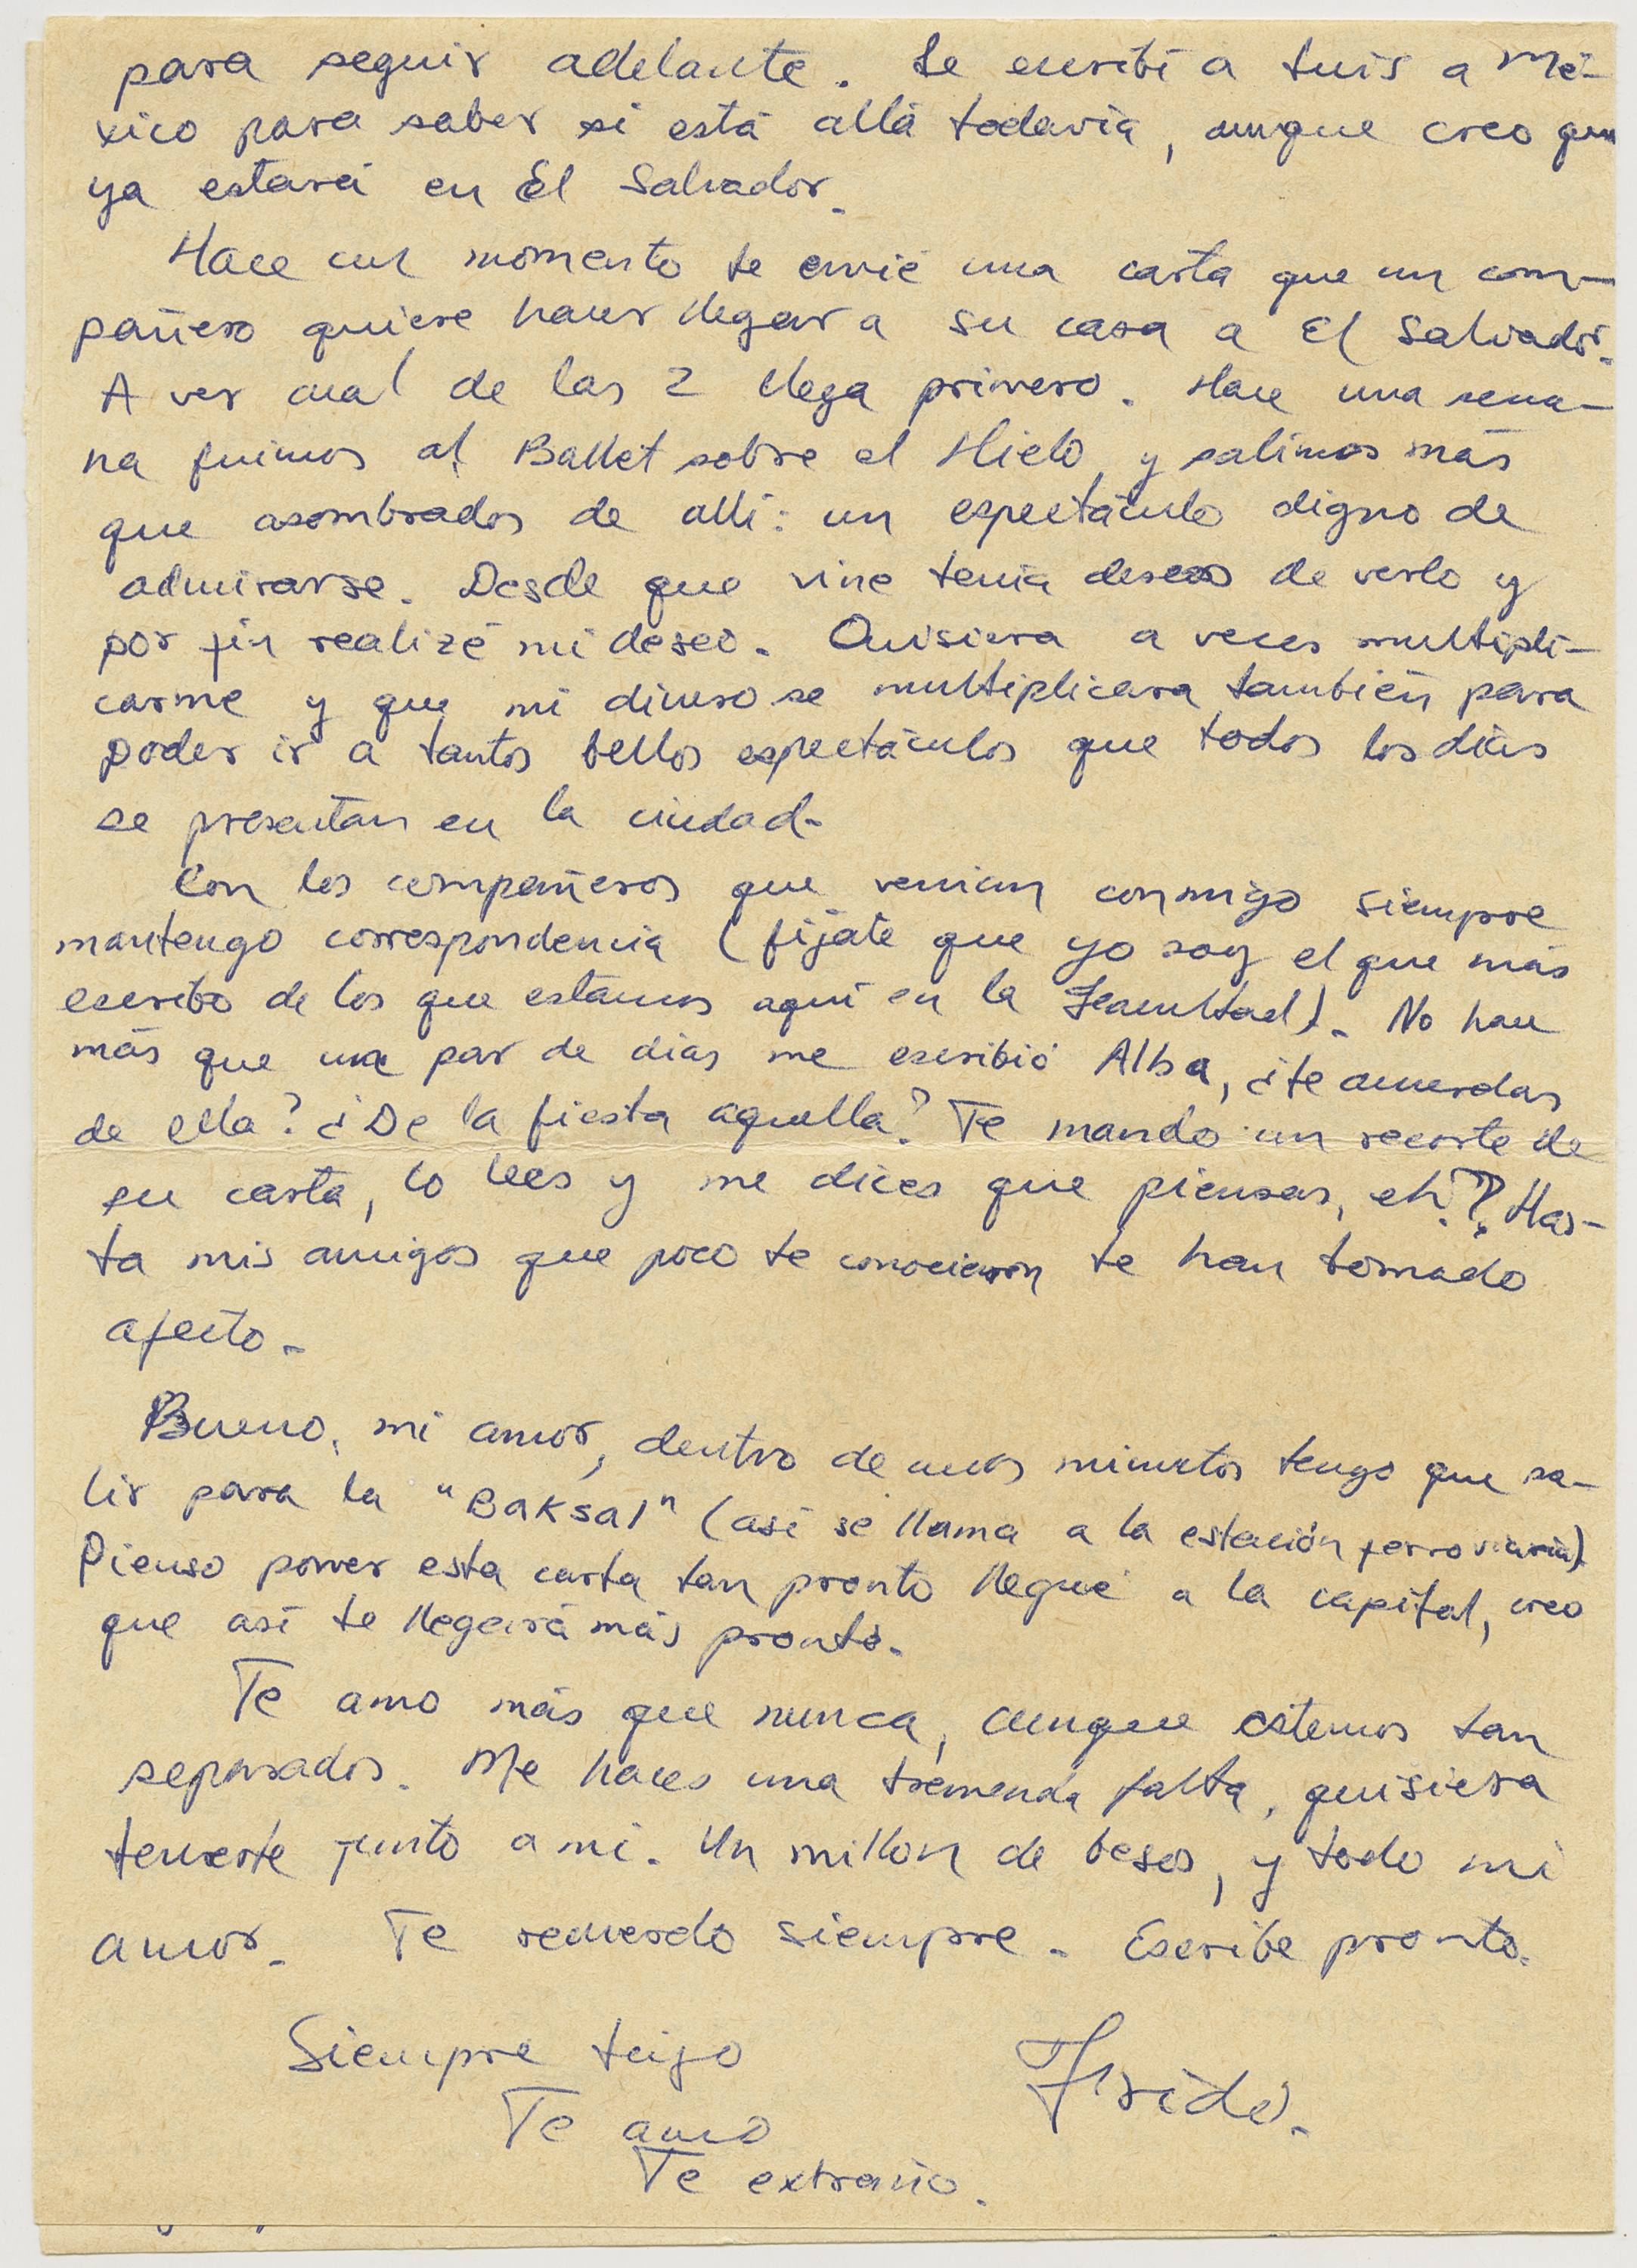 para seguir adelante. Le escribí a Luis a Mé-
xico para saber si está allá todavía, aunque creo que
ya estará en El Salvador.
Hace un momento te envié una carta que un com-
pañero quiere hacer llegar a su casa a El Salvador.
A ver cual de las 2 llega primero. Hace una sema-
na fuimos al Ballet sobre el Hielo, y salimos más
que asombrados de allí: un espectáculo digno de
admirarse. Desde que vine tenía deseos de verlo y
por fin realizé mi deseo. Quisiera a veces multipli-
carme y que mi dinero se multiplicara también para
poder ir a tantos bellos espectáculos que todos los días
se presentan en la ciudad.
Con los compañeros que venían conmigo siempre
mantengo correspondencia (fíjate que yo soy el que más
escribo de los que estamos aquí en la Facultad). No hace
más que un par de días me escribió Alba, ¿te acuerdas
de ella? ¿De la fiesta aquella? Te mando un recorte de
su carta, lo lees y me dices que piensas, eh?? Has-
ta mis amigos que poco te conocieron te han tomado
afecto.
Bueno, mi amor, dentro de unos minutos tengo que sa-
lir para la "Baksal" (así se llama a la estación ferroviaria)
Pienso poner esta carta tan pronto llegue a la capital, creo
que así te llegará más pronto.
Te amo más que nunca, aunque estemos tan
separados. Me haces una tremenda falta, quisiera
tenerte junto a mi. Un millon de besos, y todo mi
amor. Te recuerdo siempre. Escribe pronto.
Siempre tuyo
Te amo
Te extraño.